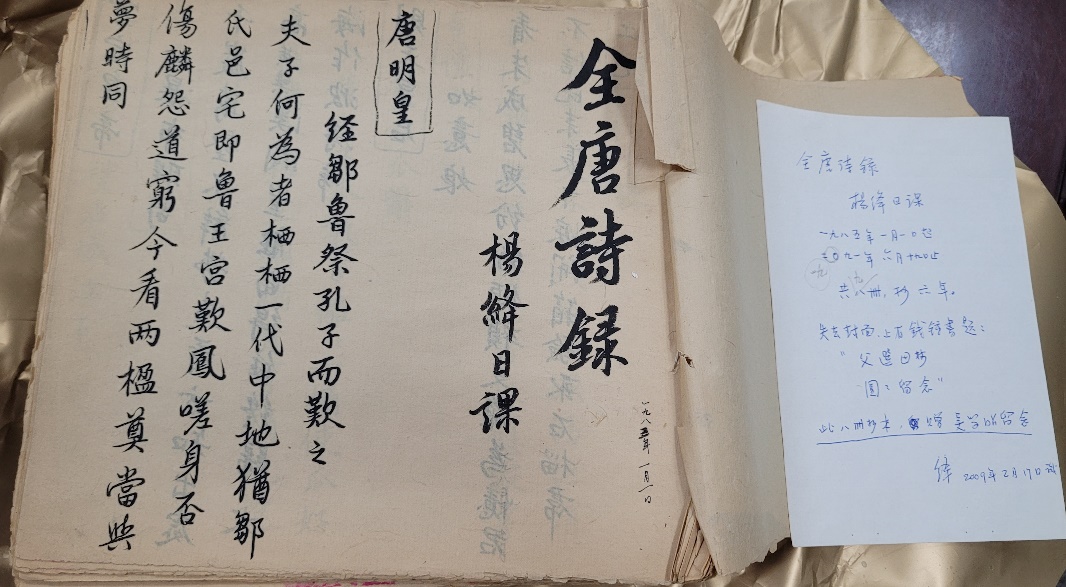 全唐詩録
楊絳日課
一九八五年一月一日
唐明皇
经鄒魯祭孔子而歎之
夫子何為者栖栖一代中地猶鄒
氏邑宅即魯王宮歎鳳嗟身否
傷麟怨道窮今看两楹奠當與
夢時同
全唐诗録
楊绛日课
一九八五年一月一日起
九一年六月十九日止
共八册，抄六年。
失去封面，上有钱锺書题：
"父選母抄
圆圆留念"
此八册抄本，赠吴学昭留念
绛 2009年2月17日